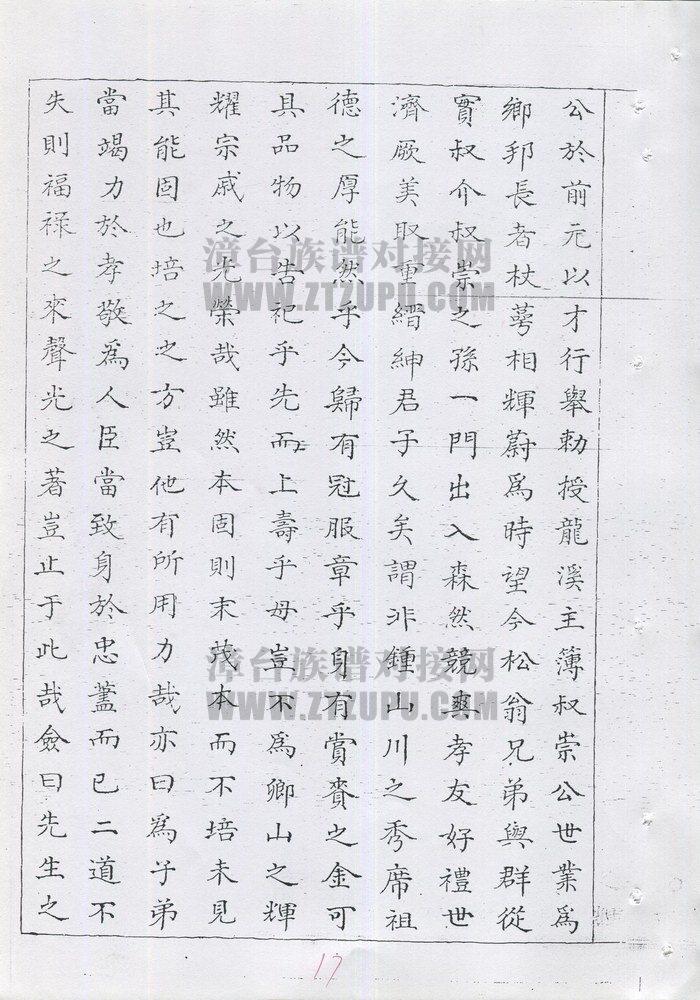 公於前元以才行舉勅授龍溪主簿叔崇公世業為
鄉邦長者杖蕚相輝蔚為時望今松翁兄弟與群從
實叔介叔崇之孫一門出入森然競爽孝友好禮世
濟厥美取重縉紳君子久矣謂非鍾山川之秀席祖
德之厚能然乎今歸有冠服章乎身有賞賚之金可
具品物以告祀乎先而上壽乎母豈不為卿山之輝
耀宗戚之光榮哉雖然本固則末茂本而不培未見
其能固也培之之方豈他有所用力哉亦曰為子弟
當竭力於孝敬為人臣當致身於忠藎而已二道不
失則福祿之來聲光之著豈止于此哉僉曰先生之
17
漳台族谱对接网
WWW.ZTZUPU.COM
漳台族谱对接网
WWW.ZTZUPU.COM